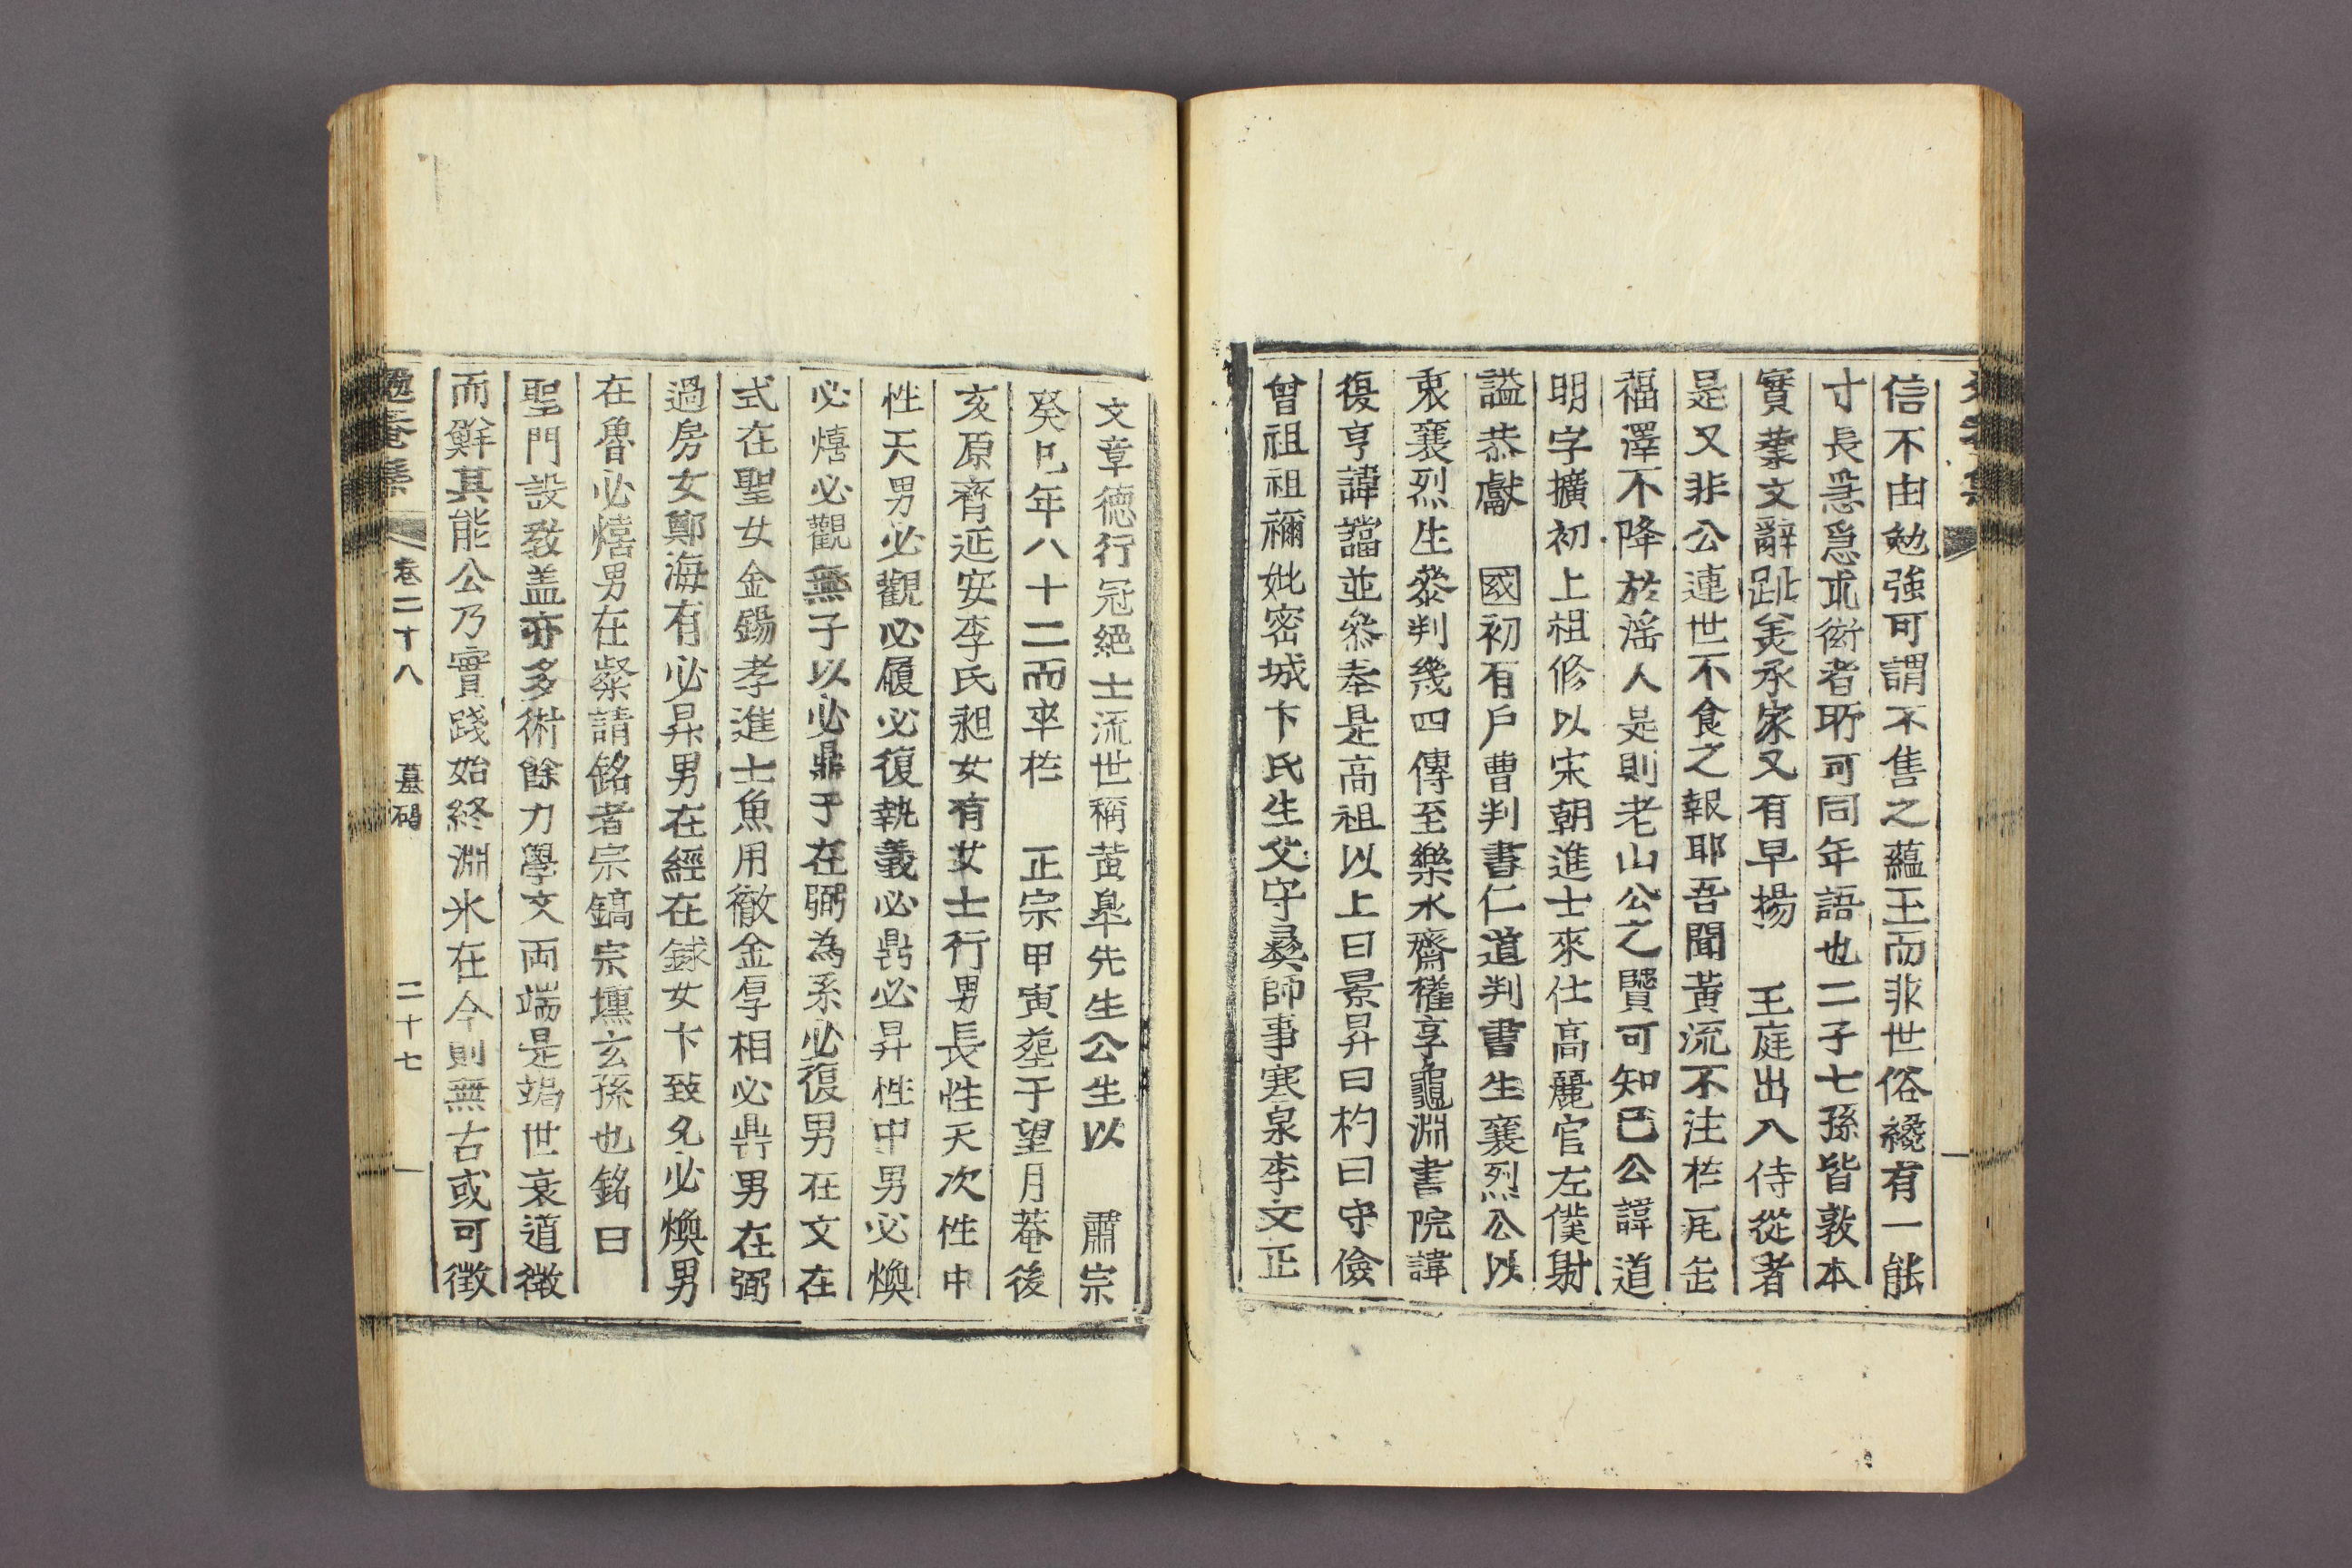 信不由勉強可謂不售之蘊玉而非世俗纔有一能
寸長急急求衒者所可同年語也二子七孫皆敦本
實業文辭趾羙承家又有早揚 王庭出入侍從者
是又非公連世不食之報耶吾聞黃流不注於瓦缶
福澤不降於淫人是則老山公之賢可知已公諱道
明字擴初上祖修以宋朝進士來仕高麗官左僕射
謚恭獻 國初有戶曹判書仁道判書生襄烈公以
衷襄烈生叅判幾四傳至樂水齋權享龜淵書院諱
復亨諱讜並叅奉是高祖以上曰景昇曰杓曰守儉
曾祖祖禰妣密城卞氏生父守彛師事寒泉李文正
文章德行冠絕士流世稱黃皐先生公生以 肅宗
癸巳年八十二而卒於 正宗甲寅塟于望月菴後
亥原齊延安李氏昶女有女士行男長性天次性中
性天男必觀必履必復執義必鼎必昇性中男必煥
必熺必觀無子以必鼎子在弼為系必復男在文在
式在聖女金錫孝進士魚用徹金厚相必鼎男在弼
過房女鄭海有必昇男在經在銶女卞致九必煥男
在魯必熺男在粲請銘者宗鎬宗壎玄孫也銘曰
聖門設敎盖亦多術餘力學文両端是竭世衰道微
而鮮其能公乃實踐始終淵氷在今則無古或可徵
卷二十八 墓碣 二十七